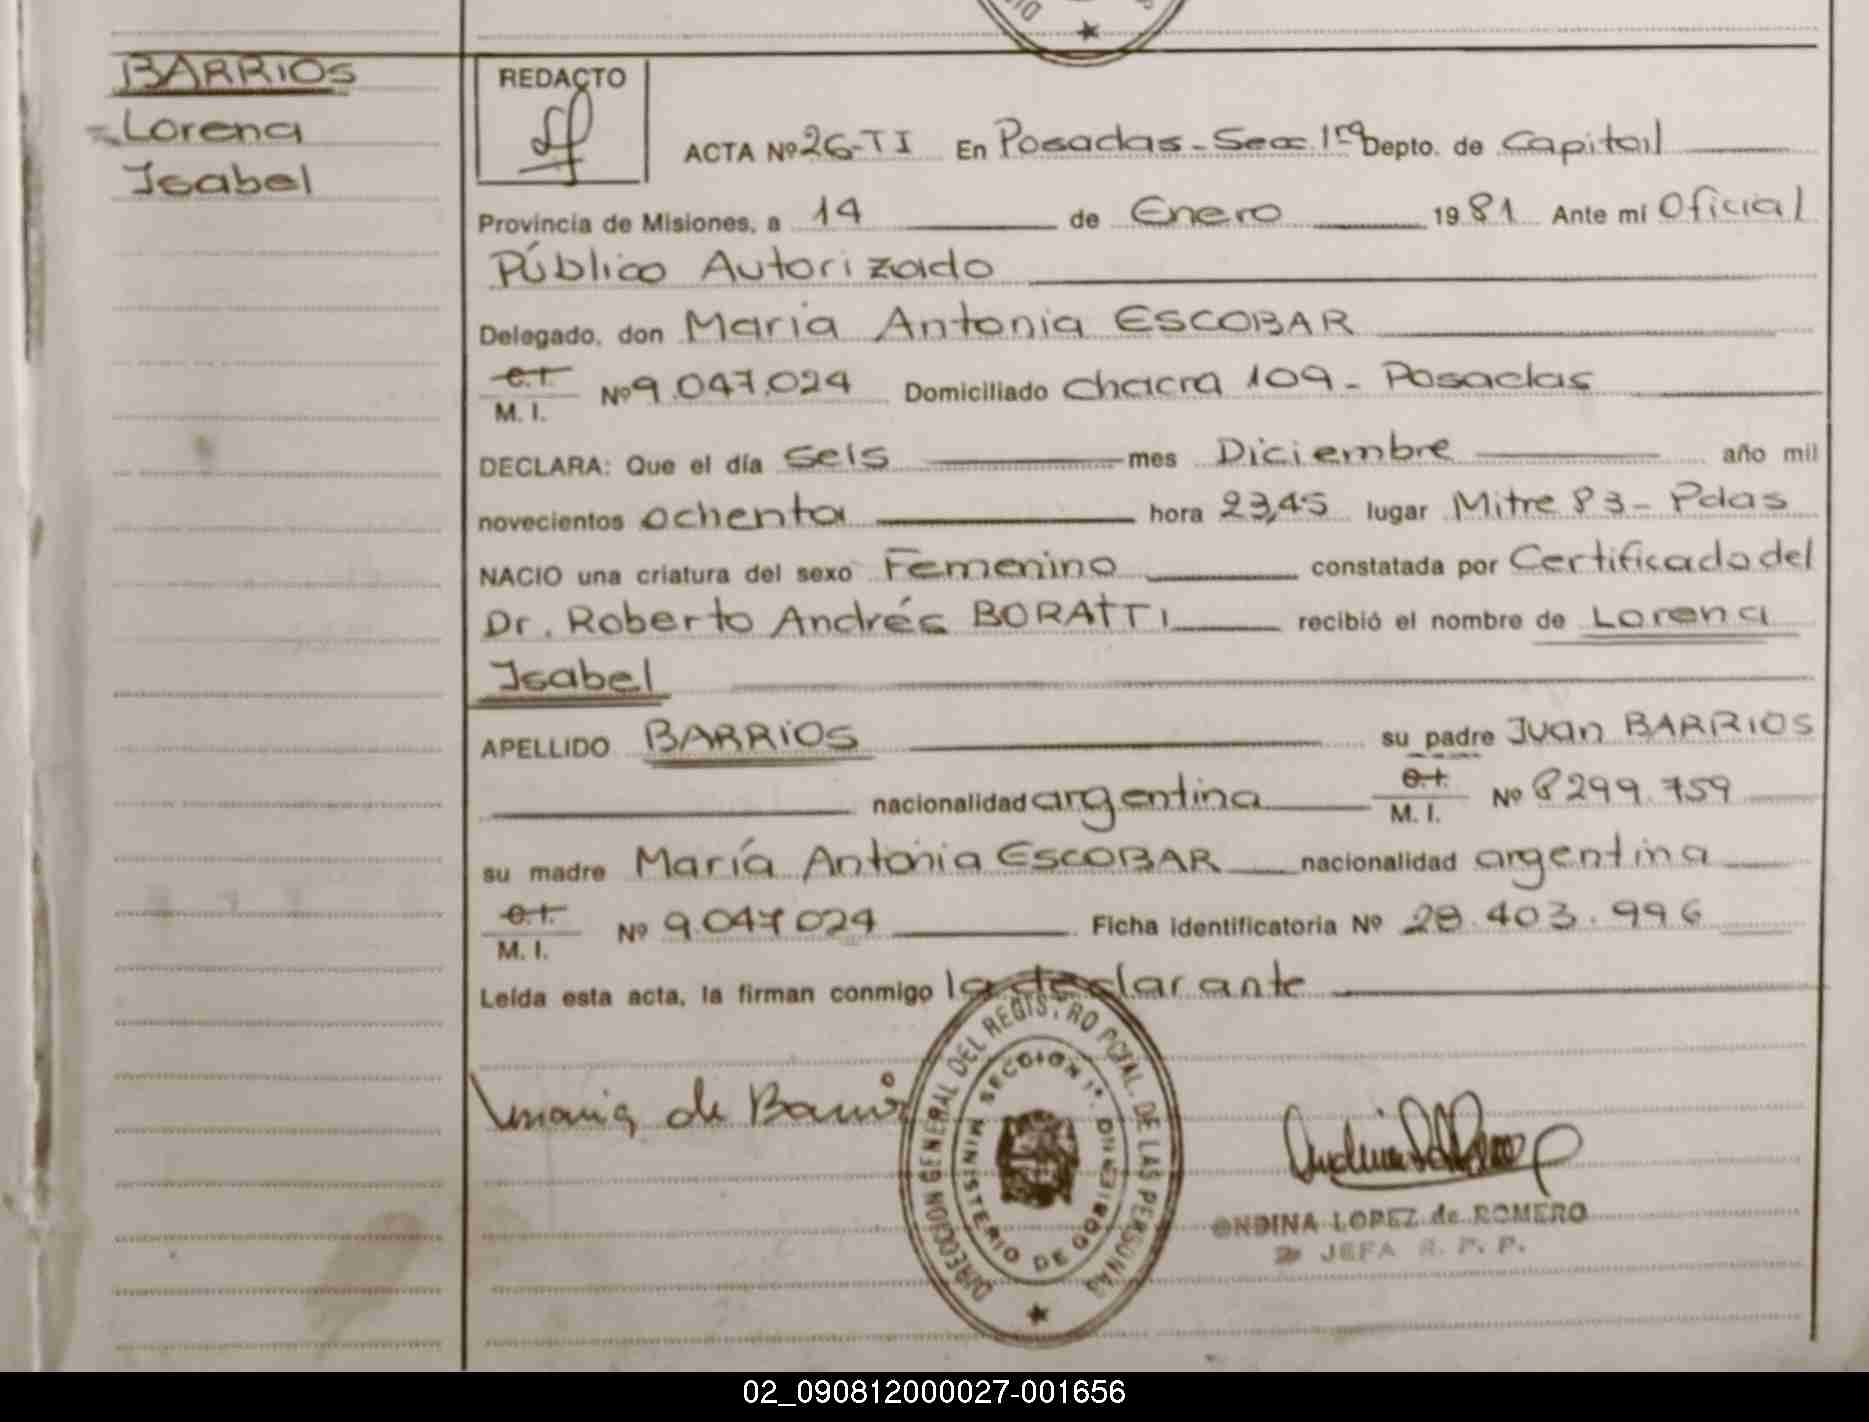 BARRIOS
Lorena
Isabel
REDACTO
ACTA Nº 26-TI En Posadas - Secc 1ra Depto. de Capital
Provincia de Misiones, a 14 de Enero 1981 Ante mí Oficial
Público Autorizado
Delegado, don Maria Antonia ESCOBAR
C.I. M. I. Nº 9.047.024 Domiciliado chacra 109 - Posadas
DECLARA: Que el día seis mes Diciembre año mil
novecientos ochenta hora 23,45 lugar Mitre 83 - Pdas
NACIO una criatura del sexo Femenino constatada por Certificado del
Dr. Roberto Andrés BORATTI recibió el nombre de Lorena
Isabel
APELLIDO BARRIOS su padre Juan BARRIOS
nacionalidad argentina C.I. M. I. Nº 8299.759
su madre María Antonia ESCOBAR nacionalidad argentina
C.I. M. I. Nº 9.047024 Ficha identificatoria Nº 28.403.996
Leída esta acta, la firman conmigo la declarante
Maria de Barrio
DIRECCION GENERAL DEL REGISTRO PCIAL. DE LAS PERSONAS
SECCION 1ª. MINISTERIO DE GOBIERNO
ONDINA LOPEZ de ROMERO
JEFA R. P. P.
02_090812000027-001656